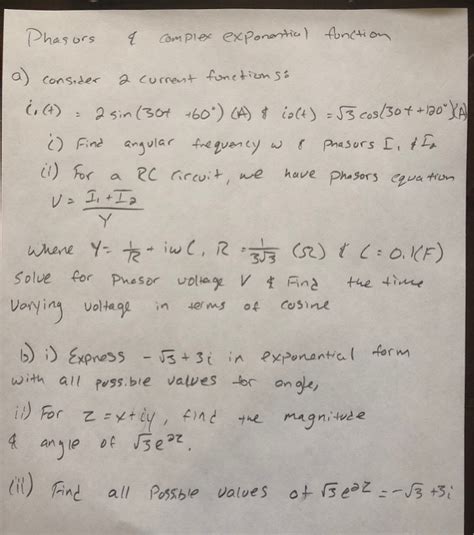 Phasors & complex exponential function
a) consider 2 current functions:
i₁(t) = 2 sin(30t +60°) (A) & i₂(t) = √3 cos(30t+120°)(A)
i) Find angular frequency w & phasors I₁ & I₂
ii) For a RC circuit, we have phasors equation
V = (I₁+I₂)/Y
where Y = 1/R + iwC, R = 1/(3√3) (Ω) & C = 0.1(F)
Solve for phasor voltage V & Find the time
varying voltage in terms of cosine
b) i) Express -√3 + 3i in exponential form
with all possible values for angle,
ii) For z = x+iy, find the magnitude
& angle of √3e²ᶻ.
iii) Find all possible values of √3e²ᶻ = -√3 +3i